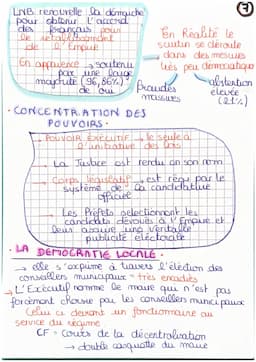 7
LNB renouvelle la démarche
pour obtenir l'accord
des français pour
le rétablissement
de l'Empire
En apparence → soutenu
par une large
majorité (96,86%)
de oui
En Réalité le
scrutin se déroule
dans des mesures
très peu démocratique
Fraudes
massives
abstention
élevée
(21%)
• CONCENTRATION DES
POUVOIRS •
→ POUVOIR EXÉCUTIF → le seul à
l'initiative des lois
→ La Justice est rendu en son nom
→ Corps législatif → est régu par le
système de la candidature
officiel
→ Les Préfets sélectionnent les
candidats dévoués à l'Empire et
leurs assure une véritable
publicité électorale
• LA DÉMOCRATIE LOCALE •
→ elle s'exprime à travers l'élection des
conseillers municipaux = très encadrés
→ L'Exécutif nomme le maire qui n'est pas
forcément choisie par les conseillers municipaux
Celui ci devient un fonctionnaire au
service du régime
CF = Cours de la décentralisation
→ double casquette du maire